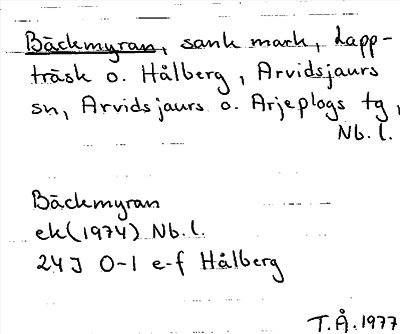 Bäckmyran, sank mark, Lapp-
träsk o. Hålberg, Arvidsjaurs
sn, Arvidsjaurs o. Arjeplogs tg,
Nb.l.
Bäckmyran
ek(1974) Nb.l.
24J 0-1 e-f Hålberg
T.Å.1977